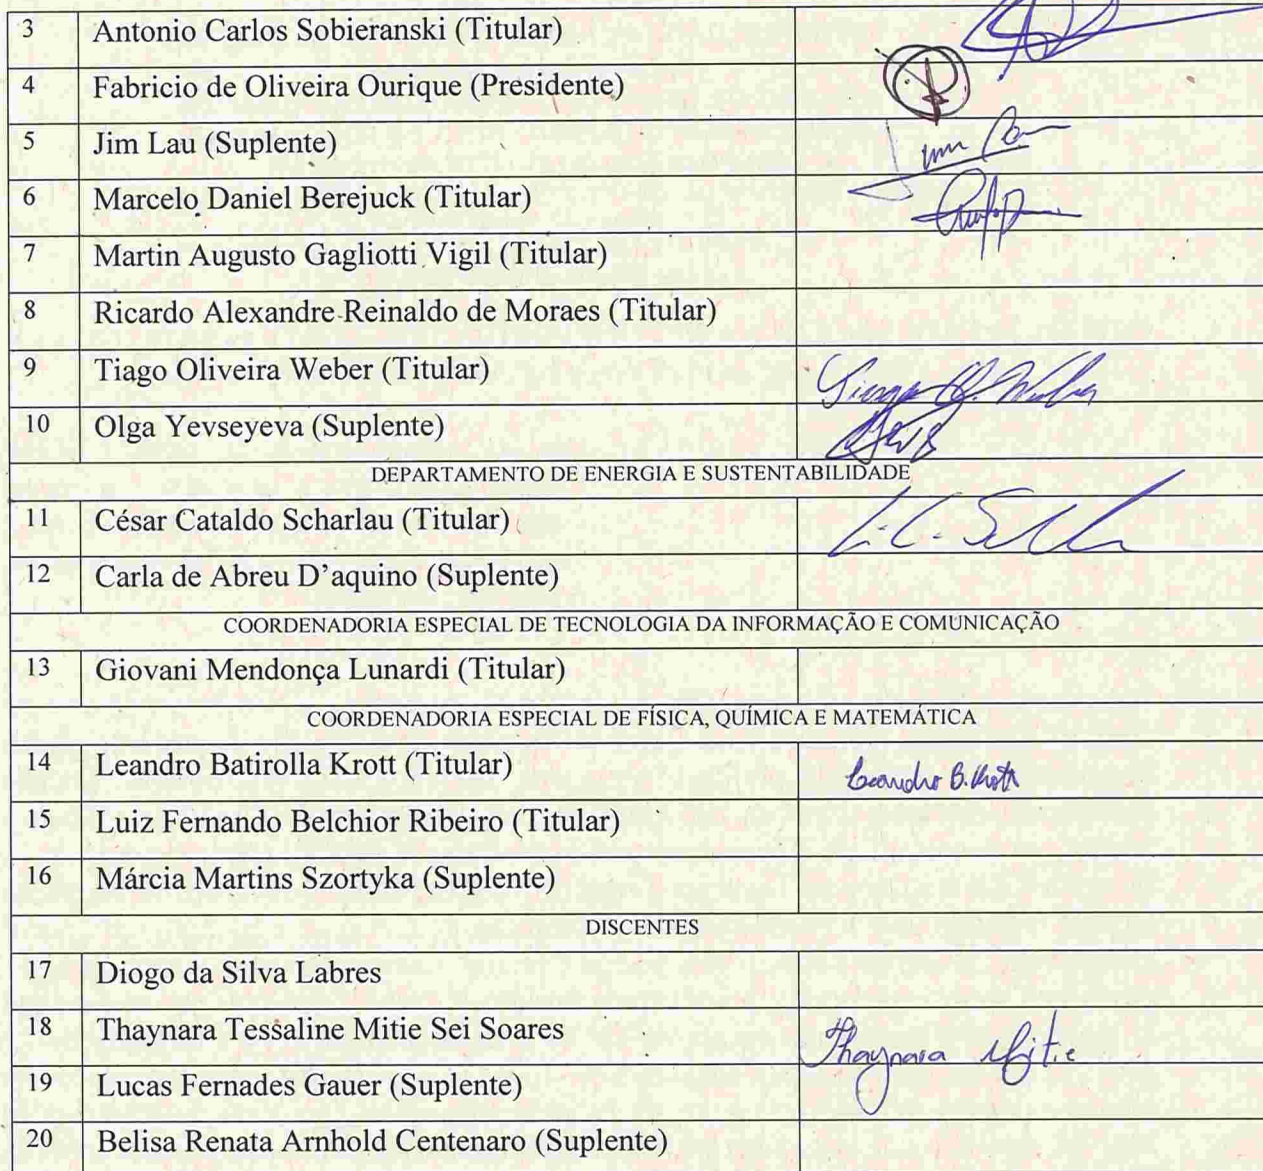 3 Antonio Carlos Sobieranski (Titular)
4 Fabricio de Oliveira Ourique (Presidente)
5 Jim Lau (Suplente)
6 Marcelo Daniel Berejuck (Titular)
7 Martin Augusto Gagliotti Vigil (Titular)
8 Ricardo Alexandre Reinaldo de Moraes (Titular)
9 Tiago Oliveira Weber (Titular) Tiago O. Weber
10 Olga Yevseyeva (Suplente)
DEPARTAMENTO DE ENERGIA E SUSTENTABILIDADE
11 César Cataldo Scharlau (Titular)
12 Carla de Abreu D’aquino (Suplente)
COORDENADORIA ESPECIAL DE TECNOLOGIA DA INFORMAÇÃO E COMUNICAÇÃO
13 Giovani Mendonça Lunardi (Titular)
COORDENADORIA ESPECIAL DE FÍSICA, QUÍMICA E MATEMÁTICA
14 Leandro Batirolla Krott (Titular) Leandro B. Krott
15 Luiz Fernando Belchior Ribeiro (Titular)
16 Márcia Martins Szortyka (Suplente)
DISCENTES
17 Diogo da Silva Labres
18 Thaynara Tessaline Mitie Sei Soares Thaynara Mitie
19 Lucas Fernades Gauer (Suplente)
20 Belisa Renata Arnhold Centenaro (Suplente)